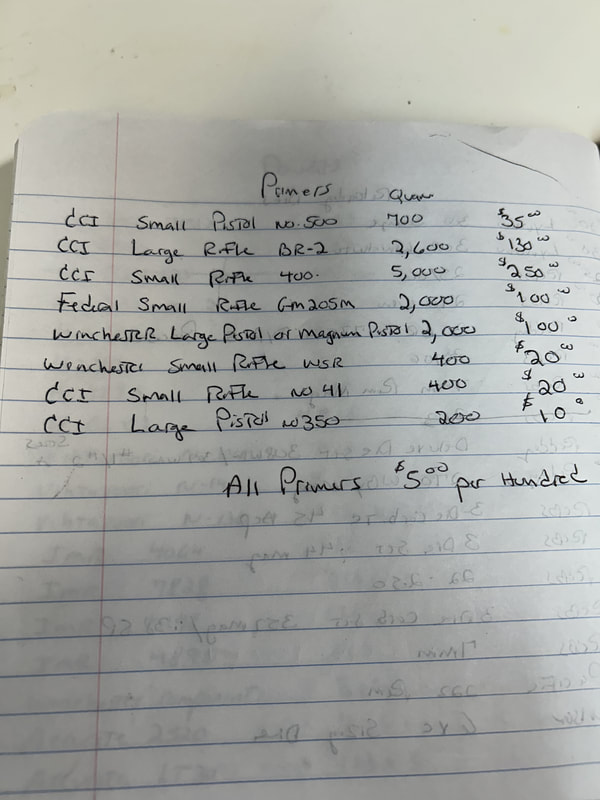 Primers Quan
CCI Small Pistol no. 500 700 $35.00
CCI Large Rifle BR-2 2,600 $130.00
CCI Small Rifle 400. 5,000 $250.00
Federal Small Rifle Gm205m 2,000 $100.00
Winchester Large Pistol or Magnum Pistol 2,000 $100.0
Winchester Small Rifle WSR 400 $20.00
CCI Small Rifle no 41 400 $20.00
CCI Large Pistol no 350 200 $10.0
All Primers $5.00 per Hundred